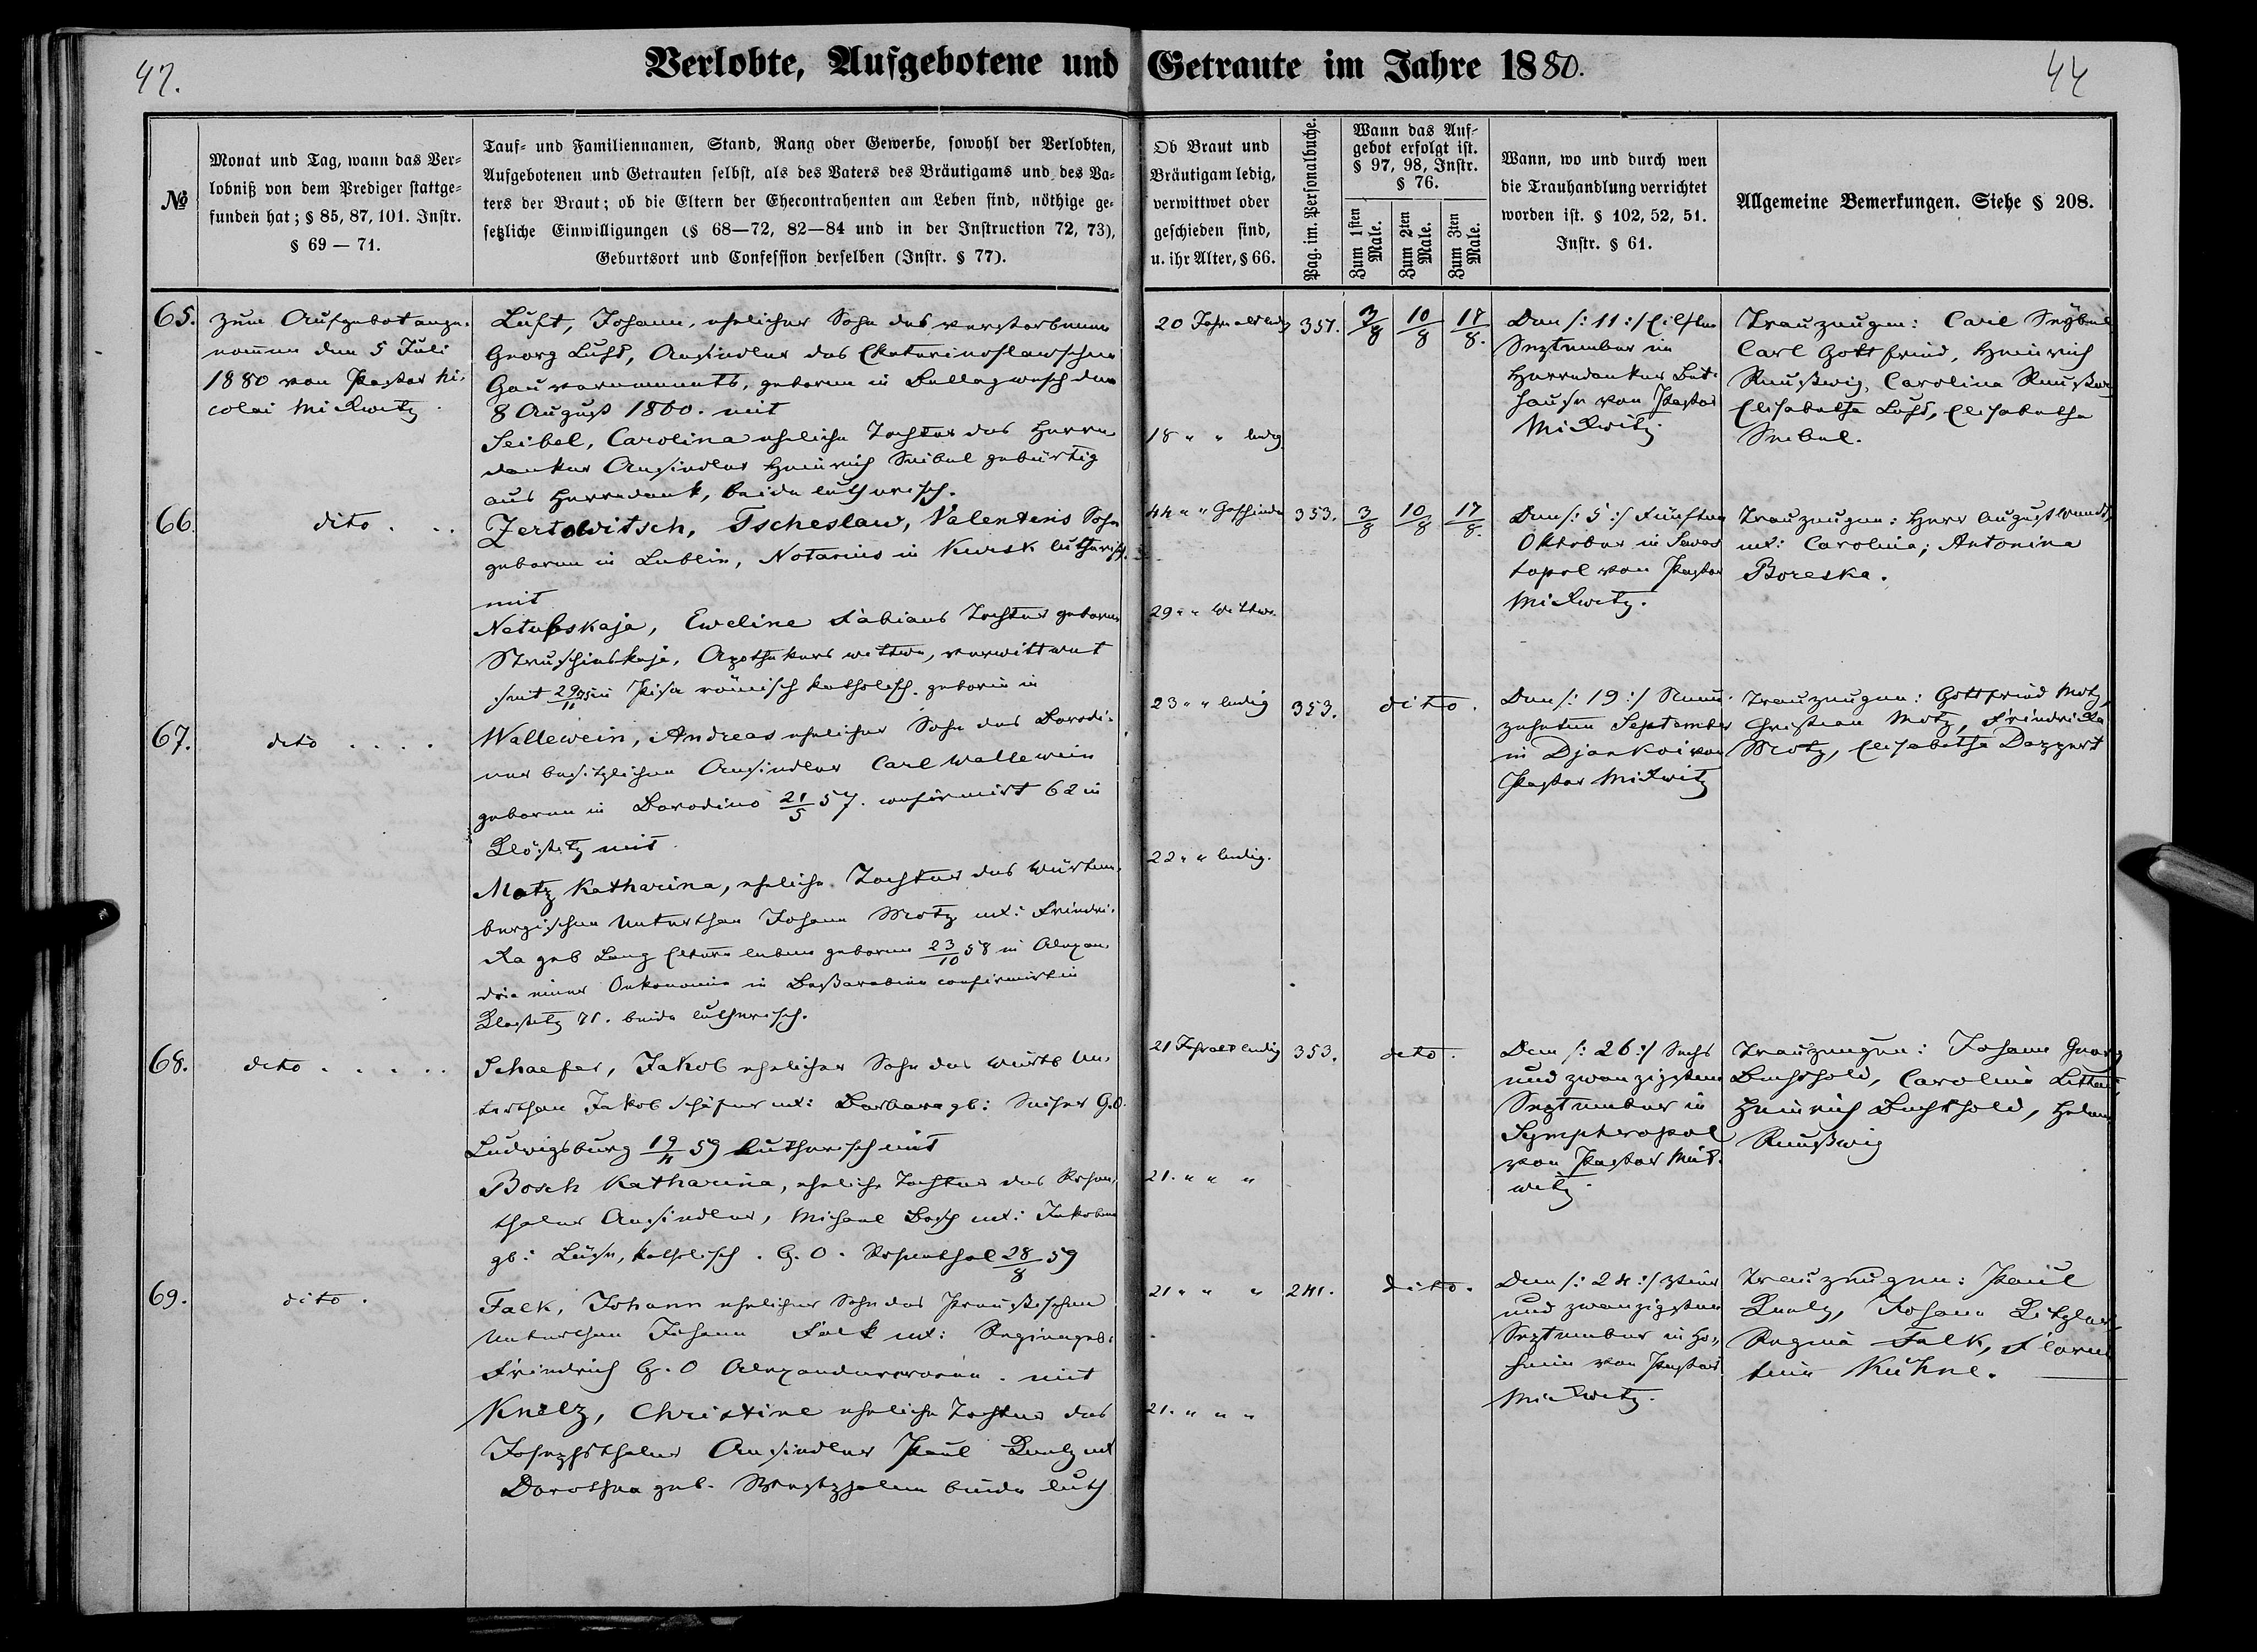 47.
Verlobte, Aufgebotene und Getraute im Jahre 1880.
44
№
Monat und Tag, wann das Ver-
lobniß von dem Prediger stattge-
funden hat; § 85, 87, 101. Instr.
§ 69 — 71.
Tauf- und Familiennamen, Stand, Rang oder Gewerbe, sowohl der Verlobten,
Aufgebotenen und Getrauten selbst, als des Vaters des Bräutigams und des Va-
ters der Braut; ob die Eltern der Ehecontrahenten am Leben sind, nöthige ge-
setzliche Einwilligungen (§ 68—72, 82—84 und in der Instruction 72, 73),
Geburtsort und Confession derselben (Instr. § 77).
Ob Braut und
Bräutigam ledig,
verwittwet oder
geschieden sind,
u. ihr Alter, § 66.
Pag. im. Personalbuche.
Wann das Auf-
gebot erfolgt ist.
§ 97, 98, Instr.
§ 76.
Zum 1sten
Male.
Zum 2ten
Male.
Zum 3ten
Male.
Wann, wo und durch wen
die Trauhandlung verrichtet
worden ist. § 102, 52, 51.
Instr. § 61.
Allgemeine Bemerkungen. Siehe § 208.
65.
zum Aufgebot ange-
nommen den 5 Juli
1880 von Pastor Ni-
colai Mickwitz.
Luft, Johann, ehelicher Sohn des verstorbenen
Georg Luft, Ansiedler des Ekaterinoslawschen
Gouvernements, geboren in den
8 August 1860. mit
Seibel, Carolina eheliche Tochter des Herrn
danker Ansiedler Heinrich Seibel gebürtig
aus Herrndank, beide lutherisch.
20 Jahr alt ledig
18 " " ledig
357.
3/8
10/8
17/8.
Den /: 11 :/ Eilften
September im
Herrndanker Bet-
hause von Pastor
Mickwitz.
Trauzeugen: Carl Seybel
Carl Gottfried, Heinrich
Carolina
Elisabetha Luft, Elisabetha
Seibel.
66.
dito . . .
Zertowitsch, Tscheslaw, Valentins Sohn
geboren in Lublin, Notarius in Kursk lutherisch.
mit
Eweline Fabians Tochter geborene
Struschinskaja, Apothekers wittwe, verwittwet
seit 29/11 75 in Pisa römisch katholisch. geboren in
44 " " Geschieden
29 " " Wittwe
353.
3/8
10/8
17/8.
Den /: 5 :/ Fünften
Oktober in Sewas
topol von Pastor
Mickwitz.
Trauzeugen: Herr August Wendt,
ux: Carolina; Antonina
Boreska.
67.
dito . . . .
Wallewein, Andreas ehelicher Sohn des Borodi-
ner besitzlichen Ansiedler Carl Wallewein
geboren in Borodino 21/5 57. confirmirt 62 in
Klöstitz mit
Motz Katharina, eheliche Tochter des Würtem-
bergischen Unterthan Johann Motz ux: Friedri-
ka geb Lang Eltern leben geboren 23/10 58 in Alexan
dria einer Oekonomie in Beßarabien confirmirt in
Klöstitz 71. beide lutherisch.
23 " " ledig
22 " " ledig.
353.
dito.
Den /: 19 :/ Neun-
zehnten September
in Djankoi von
Pastor Mickwitz
Trauzeugen: Gottfried Motz,
Christian Motz, Friedricka
Motz, Elisabetha Deppert
68.
dito . . . . .
Schaefer, Jakob ehelicher Sohn des Würtb Un-
terthan Jakob Schäfer ux: Barbara gb: G.O.
Ludwigsburg 19/4 59 lutherisch mit
Bosch Katharina, eheliche Tochter des Rosen-
thaler Ansiedler, Michael Bosch ux: Jakobine
gb: katholisch. G. O. Rosenthal 28/8 59
21 Jahr alt ledig
21. " " "
353.
dito.
Den /: 26 :/ Sechs
und zwanzigsten
September in
Sympheropol
von Pastor Mick-
witz.
Trauzeugen: Johann Georg
Carolina
Heinrich
69.
dito.
Falk, Johann ehelicher Sohn des Preußischen
Unterthan Johann Falk ux: Regina geb:
Friedrich G. O mit
Knelz, Christine eheliche Tochter des
Josephsthaler Ansiedler Paul Knelz ux
Dorothea geb. beide luth
21 " " "
21. " " "
241.
dito.
Den /: 24 :/ Vier
und zwanzigsten
September in
von Pastor
Mickwitz.
Trauzeugen: Paul
Knelz, Johann
Regina Falk, Floren
tine Kühne.